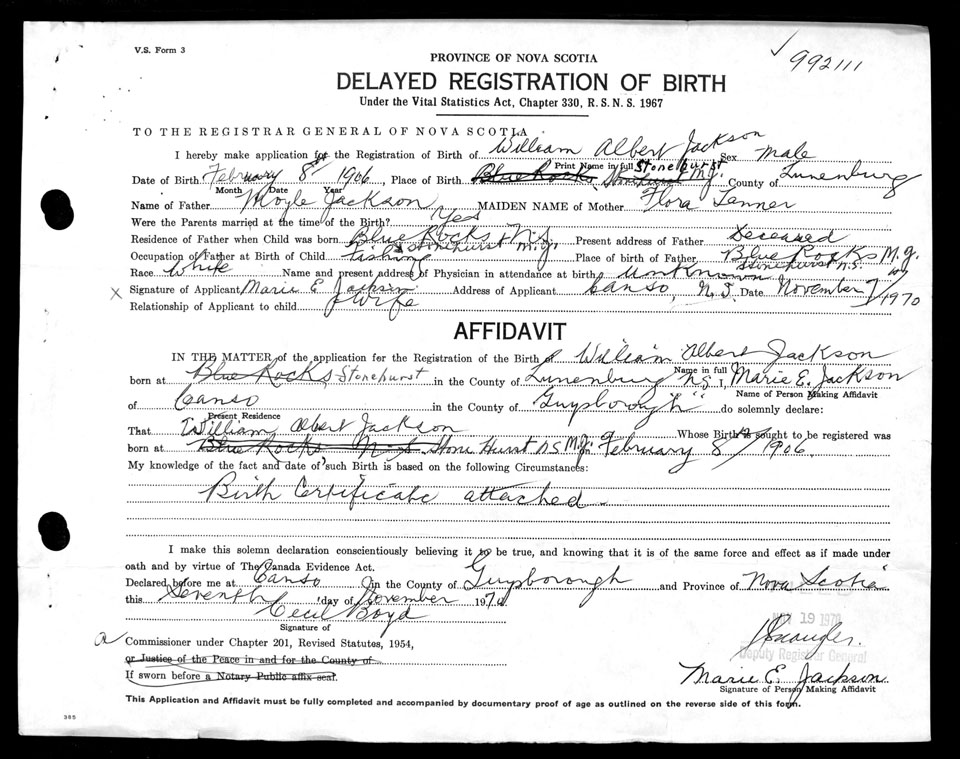 V.S. Form 3
992111
PROVINCE OF NOVA SCOTIA
DELAYED REGISTRATION OF BIRTH
Under the Vital Statistics Act, Chapter 330, R.S.N.S. 1967
TO THE REGISTRAR GENERAL OF NOVA SCOTIA
I hereby make application for the Registration of Birth of William Albert Jackson Sex Male
Print Name in full Stonehurst
Date of Birth February 8th 1906 Place of Birth Blue Rocks County of Lunenburg
Month Date Year
Name of Father Moyle Jackson MAIDEN NAME of Mother Flora Tanner
Were the Parents married at the time of the Birth? Yes
Residence of Father when Child was born Blue Rocks N.S. Stonehurst Present address of Father Deceased
Occupation of Father at Birth of Child Fishing Place of birth of Father Blue Rocks Stonehurst N.S.
Race White Name and present address of Physician in attendance at birth Unknown
X Signature of Applicant Marie E. Jackson Address of Applicant Canso, N.S. Date November 7/1970
Relationship of Applicant to child Wife
AFFIDAVIT
IN THE MATTER of the application for the Registration of the Birth of William Albert Jackson
Name in full
born at Blue Rocks, Stonehurst in the County of Lunenburg N.S. I, Marie E. Jackson
Name of Person Making Affidavit
of Canso in the County of Guysborough do solemnly declare:
Present Residence
That William Albert Jackson Whose Birth is sought to be registered was
born at Blue Rocks N.S. Stone Hurst N.S. February 8th 1906.
My knowledge of the fact and date of such Birth is based on the following Circumstances:
Birth Certificate attached.
I make this solemn declaration conscientiously believing it to be true, and knowing that it is of the same force and effect as if made under
oath and by virtue of The Canada Evidence Act.
Declared before me at Canso in the County of Guysborough and Province of Nova Scotia
this Seventh day of November 1970
Cecil Boyd
NOV 19 1970
Signature of
a Commissioner under Chapter 201, Revised Statutes, 1954,
Deputy Registrar General
or Justice of the Peace in and for the County of
If sworn before a Notary Public affix seal.
Marie E. Jackson
Signature of Person Making Affidavit
This Application and Affidavit must be fully completed and accompanied by documentary proof of age as outlined on the reverse side of this form.
385